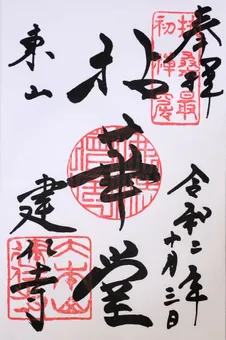 奉拝
扶桑最
初禅窟
令和二年
十月三日
拈華堂
東山
建仁寺
大本山